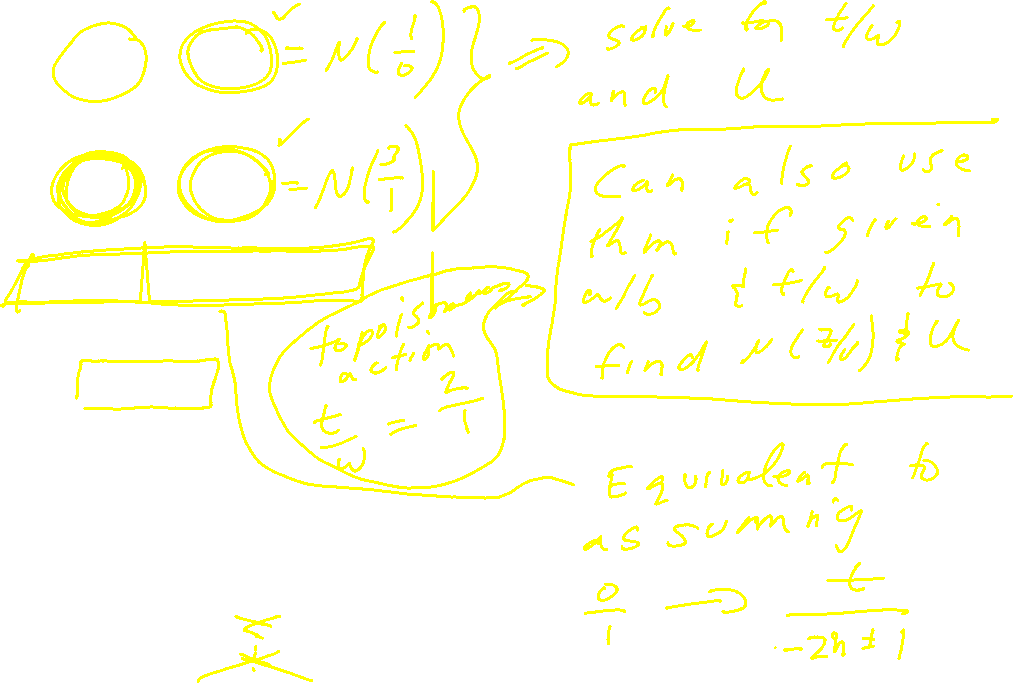 ✓ = N(1/0)
✓ = N(3/1)
⇒ solve for t/w
and U
Can also use
thm if given
a/b & t/w to
find N(z/v) & U
topoisomerase
action
t/w = 2/1
Equivalent to
assuming
0/1 → t/(-2n ± 1)